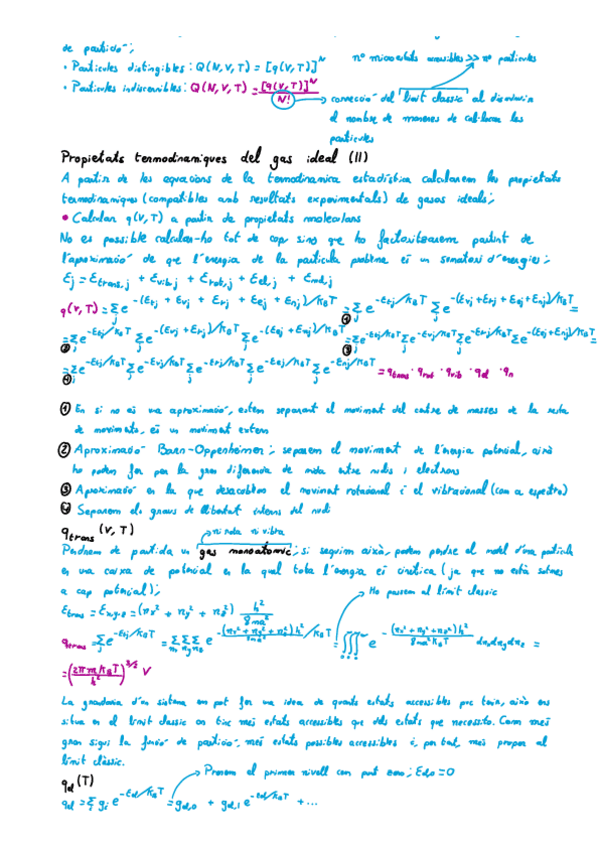 de partició;
· Partícules distingibles: Q(N,V,T) = [q(V,T)]^N nº microestats accessibles >> nº partícules
· Partícules indiscernibles: Q(N,V,T) = [q(V,T)]^N / N! → correcció del límit clàssic al discernir
el nombre de maneres de col·locar les
partícules
Propietats termodinàmiques del gas ideal (II)
A partir de les equacions de la termodinàmica estadística calcularem les propietats
termodinàmiques (compatibles amb resultats experimentals) de gasos ideals;
• Calcular q(V,T) a partir de propietats moleculars
No és possible calcular-ho tot de cop, sinó que ho factoritzarem partint de
l'aproximació de que l'energia de la partícula problema és un sumatori d'energies;
Ɛj = Ɛtrans,j + Ɛvib,j + Ɛrot,j + Ɛel,j + Ɛnd,j
q(V,T) = Σj e^-(Ɛtj + Ɛvj + Ɛrj + Ɛej + Ɛnj)/KBT =① Σj e^-Ɛtj/KBT Σj e^-(Ɛvj+Ɛrj+Ɛej+Ɛnj)/KBT =
=② Σj e^-Ɛtj/KBT Σj e^-(Ɛvj+Ɛrj)/KBT Σj e^-(Ɛej+Ɛnj)/KBT =③ Σj e^-Ɛtj/KBT Σj e^-Ɛvj/KBT Σj e^-Ɛrj/KBT Σj e^-(Ɛej+Ɛnj)/KBT =
=④ Σj e^-Ɛtj/KBT Σj e^-Ɛvj/KBT Σj e^-Ɛrj/KBT Σj e^-Ɛej/KBT Σj e^-Ɛnj/KBT = qtrans · qrot · qvib · qel · qn
① En si no és una aproximació, estem separant el moviment del centre de masses de la resta
de moviments, és un moviment extern
② Aproximació Born-Oppenheimer; separem el moviment de l'energia potencial, això
ho podem fer per la gran diferència de mida entre nuclis i electrons
③ Aproximació en la que desacoblem el moviment rotacional i el vibracional (com a espectro)
④ Separem els graus de llibertat interns del nucli
qtrans (V,T) → ni rota ni vibra
Partirem de partida un gas monoatòmic; si seguim això, podem prendre el model d'una partícula
en una caixa de potencial en la qual tota l'energia és cinètica (ja que no està sotmès
a cap potencial); Ho passem al límit clàssic
Ɛtrans = Ɛx,y,z = (nx² + ny² + nz²) h²/8ma²
qtrans = Σj e^-Ɛtj/KBT = Σnx Σny Σnz e^-(nx² + ny² + nz²)h²/8ma²/KBT = ∭ e^-(nx² + ny² + nz²)h²/8ma²KBT dnx dny dnz =
= (2πmKBT/h²)^3/2 V
La grandària d'un sistema em pot fer una idea de quants estats accessibles puc tenir, això ens
situa en el límit clàssic on tinc més estats accessibles que dels estats que necessito. Com més
gran sigui la funció de partició, més estats possibles accessibles i, per tant, més proper al
límit clàssic.
qel (T) → Posem el primer nivell com punt zero; Ɛel,0 = 0
qel = Σi gi e^-Ɛel/KBT = gel,0 + gel,1 e^-Ɛel/KBT + ...